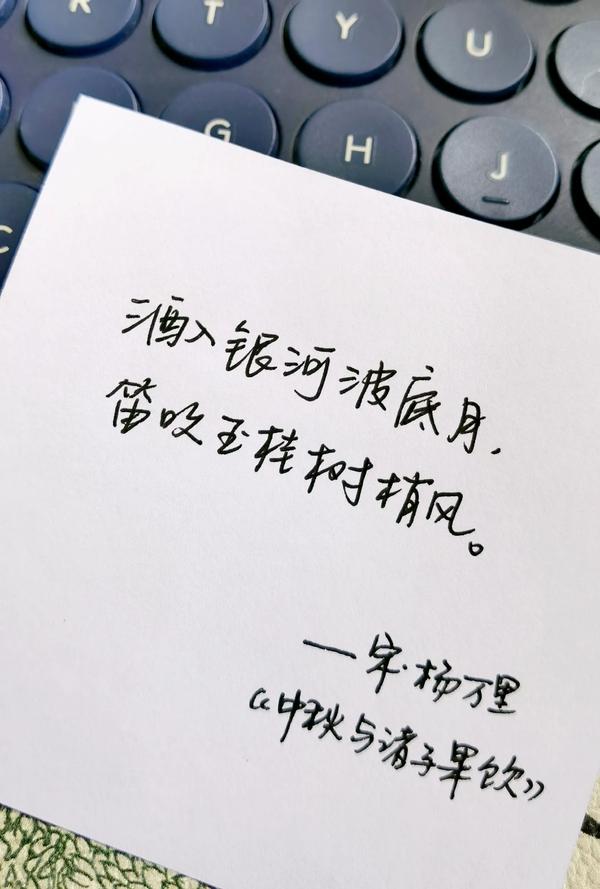 R T Y U
G H J
C
酒入银河波底月,
笛吹玉桂树梢风。
——宋·杨万里
《中秋与诸子果饮》